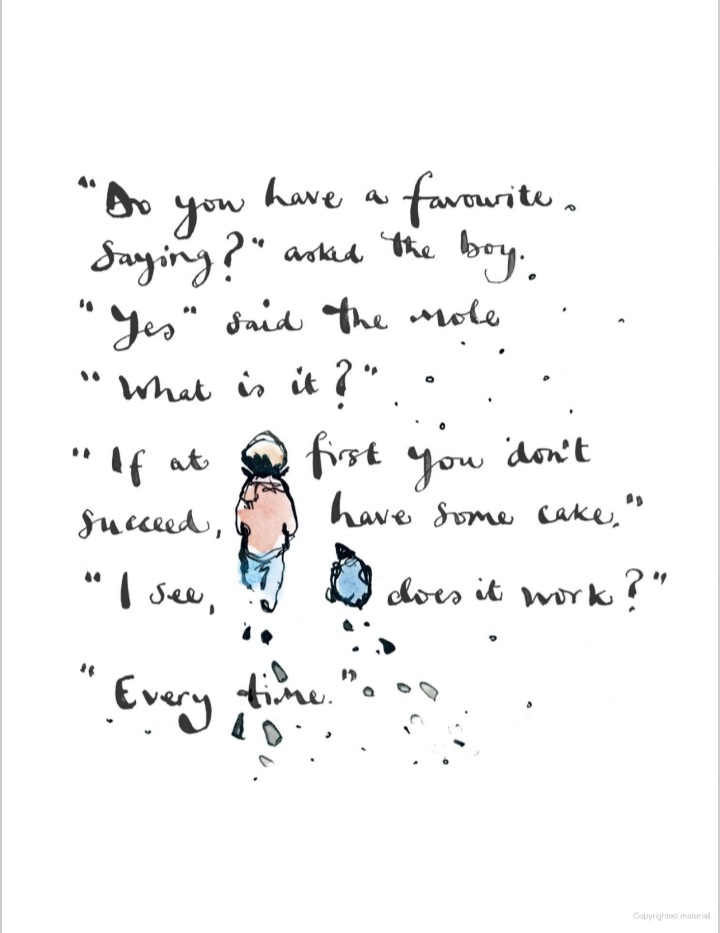 "Do you have a favourite
saying?" asked the boy.
"Yes" said the mole
"What is it?"
"If at first you don't
succeed, have some cake."
"I see, does it work?"
"Every time."
Copyrighted material